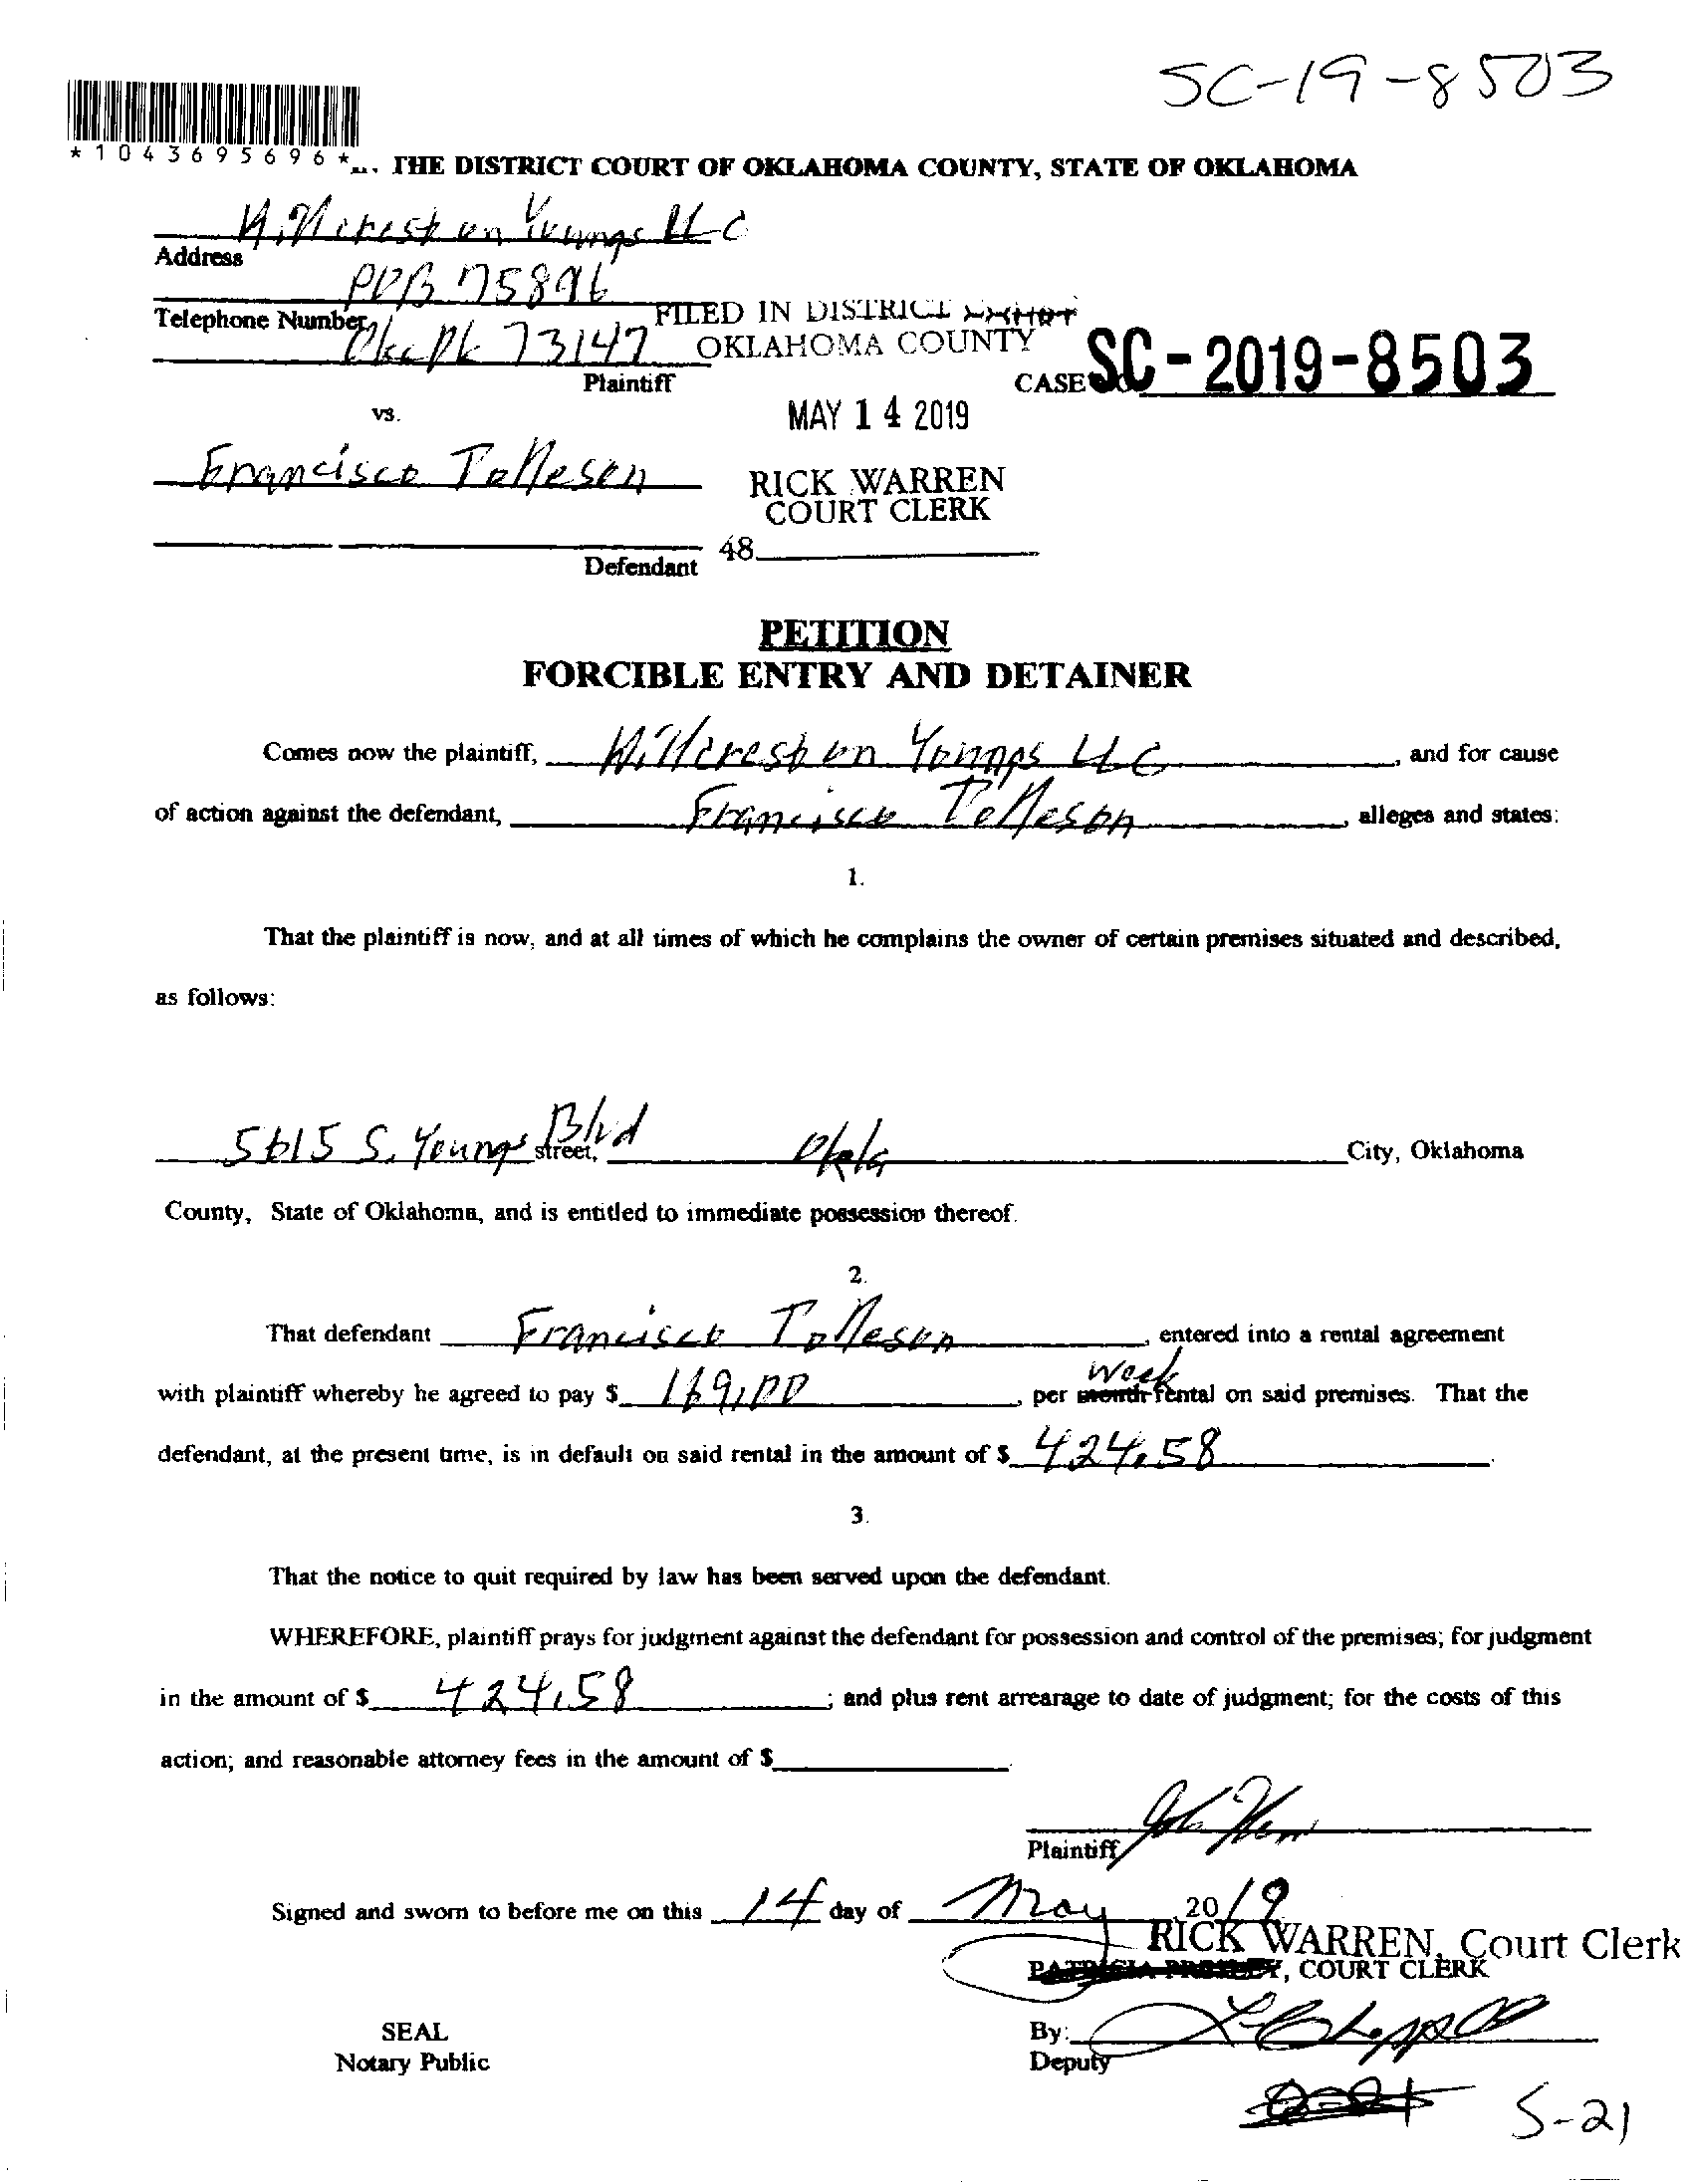 SC-19-8503
*1043695696*
THE DISTRICT COURT OF OKLAHOMA COUNTY, STATE OF OKLAHOMA
Hillcrest on Youngs LLC
Address
POB 75896
Telephone Number
Okc Ok 73147
FILED IN DISTRICT COURT
OKLAHOMA COUNTY
Plaintiff
CASE SC-2019-8503
vs.
MAY 14 2019
Francisco Tolleson
RICK WARREN
COURT CLERK
48
Defendant
PETITION
FORCIBLE ENTRY AND DETAINER
Comes now the plaintiff, Hillcrest on Youngs LLC, and for cause
of action against the defendant, Francisco Tolleson, alleges and states:
1.
That the plaintiff is now, and at all times of which he complains the owner of certain premises situated and described,
as follows:
5615 S. Youngs Blvd street, Okla City, Oklahoma
County, State of Oklahoma, and is entitled to immediate possession thereof.
2.
That defendant Francisco Tolleson, entered into a rental agreement
with plaintiff whereby he agreed to pay $ 169.00, per month week rental on said premises. That the
defendant, at the present time, is in default on said rental in the amount of $ 424.58
3.
That the notice to quit required by law has been served upon the defendant.
WHEREFORE, plaintiff prays for judgment against the defendant for possession and control of the premises; for judgment
in the amount of $ 424.58; and plus rent arrearage to date of judgment; for the costs of this
action; and reasonable attorney fees in the amount of $
Plaintiff
Signed and sworn to before me on this 14 day of May, 2019
RICK WARREN, Court Clerk
PATRICIA PRESLEY, COURT CLERK
SEAL
By:
Notary Public
Deputy
5-21